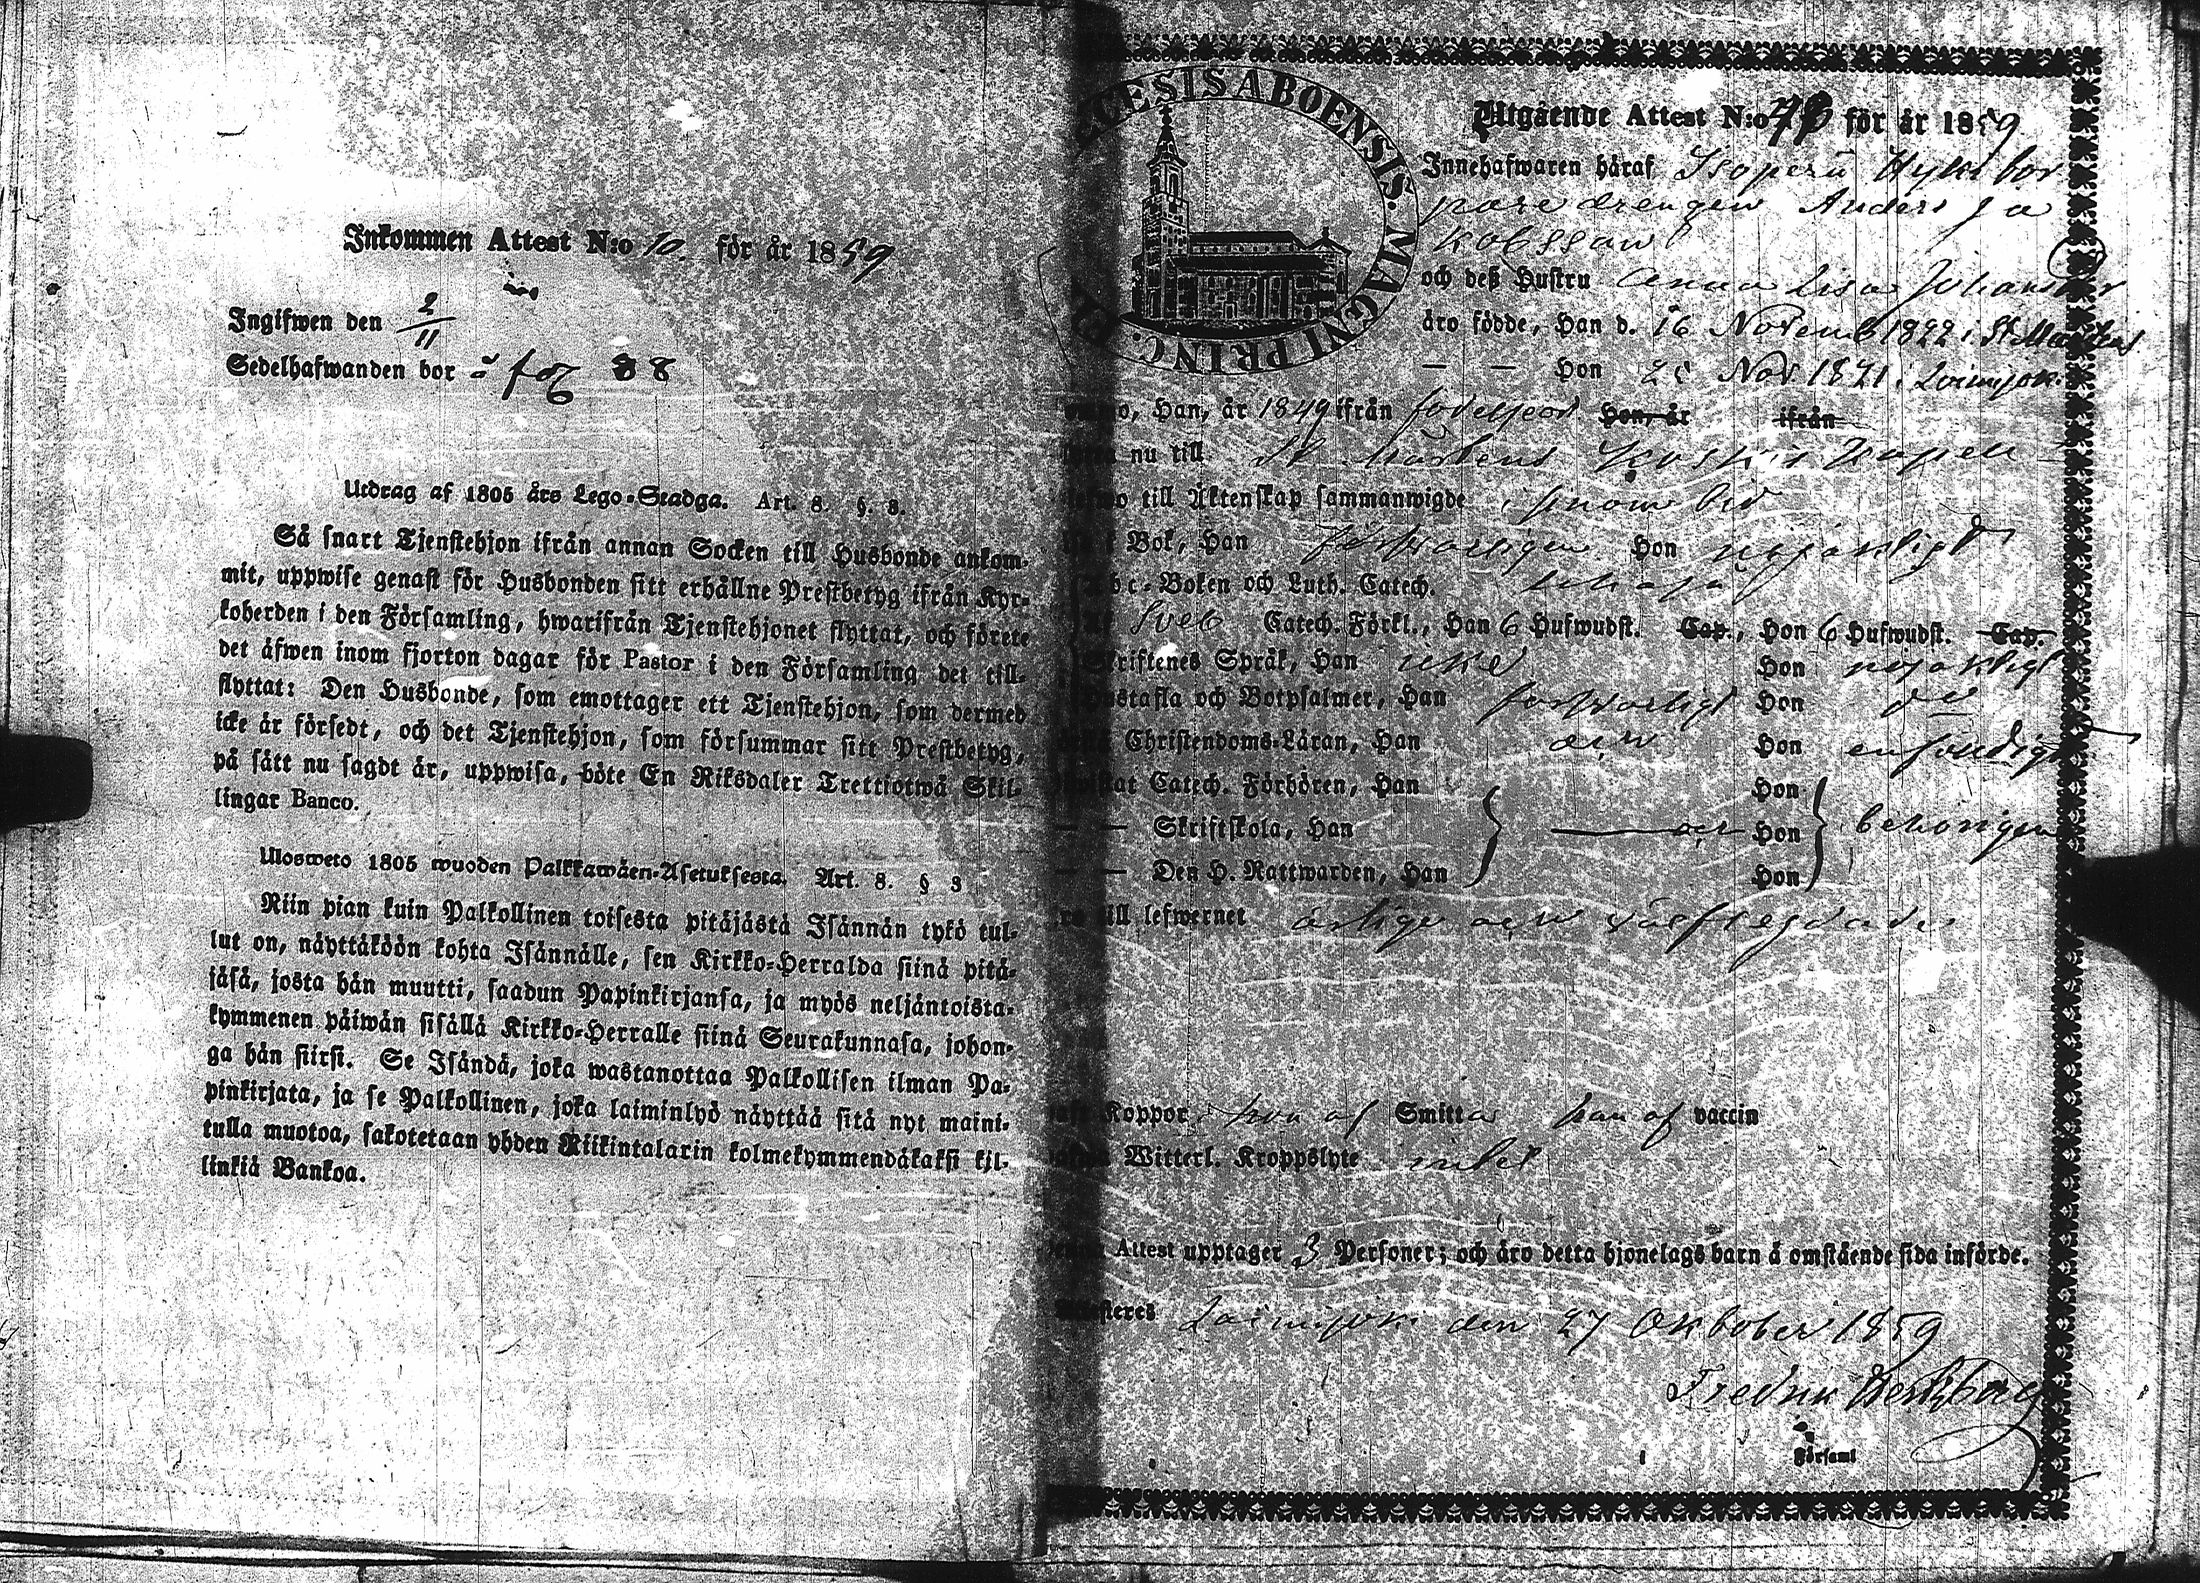 Inkommen Attest N:o 10. för år 1859
Ingifwen den 2/11
Sedelhafwanden bor å fog 88
Utdrag af 1805 års Lego-Stadga. Art. 8. §. 8.
Så snart Tjenstehjon ifrån annan Socken till Husbonde ankom-
mit, uppwise genast för Husbonden sitt erhållne Prestbetyg ifrån Kyr-
koherden i den Församling, hwarifrån Tjenstehjonet flyttat, och förete
det äfwen inom fjorton dagar för Pastor i den Församling det till-
flyttat: Den Husbonde, som emottager ett Tjenstehjon, som dermed
icke är försedt, och det Tjenstehjon, som försummar sitt Prestbetyg,
på sätt nu sagdt är, uppwisa, böte En Riksdaler Trettiotwå Skil-
lingar Banco.
Ulosweto 1805 wuoden Palkkawäen-Asetuksesta. Art. 8. § 8
Niin pian kuin Palkollinen toisesta pitäjästä Isännän tykö tul-
lut on, näyttäköön kohta Isännälle, sen Kirkko-Herralda siinä pitä-
jäsä, josta hän muutti, saadun Papinkirjansa, ja myös neljäntoista-
kymmenen päiwän sisällä Kirkko-Herralle siinä Seurakunnasa, johon-
ga hän siirsi. Se Isändä, joka wastanottaa Palkollisen ilman Pa-
pinkirjata, ja se Palkollinen, joka laiminlyö näyttää sitä nyt maini-
tulla muotoa, sakotetaan yhden Riikintalarin kolmekymmendäkaksi kil-
linkiä Bankoa.
CESIS ABOENSIS. MAGNI PRINC.
Utgående Attest N:o för år 1859
Innehafwaren häraf Isoperä
drengen Anders Ja
kobsson
och deß Hustru Anna Lisa Johansdr
äro födde, Han d. 16 Novemb 1822 i St Mårtens
— — Hon 25 Nov. 1821 i Loimijoki
Han, år 1849 ifrån Hon, år ifrån
nu till St Mårtens Koskis Kapell
till Äktenskap sammanwigde genom bud
Bok, Han försvarligen Hon nöjaktigt
bc-Boken och Luth. Catech.
Sveb Catech. Förkl., Han 6 Hufwudst. Cap., Hon 6 Hufwudst. Cap.
Skriftenes Språk, Han icke Hon nöjaktigt
ustafla och Botpsalmer, Han försvarligt Hon do
Christendoms-Läran, Han och Hon enfaldigt
Catech. Förhören, Han Hon
— — Skriftskola, Han och Hon behörigen
— — Den H. Nattwarden, Han Hon
till lefwernet ärlige och väl fregdade
Koppor hon af Smittor han af vaccin
Witterl. Kroppslyte intet
Attest upptager 3 Personer; och äro detta hjonelags barn å omstående sida införde.
Loimijoki den 27 Oktober 1859
Fredrik Hertzberg
Församl